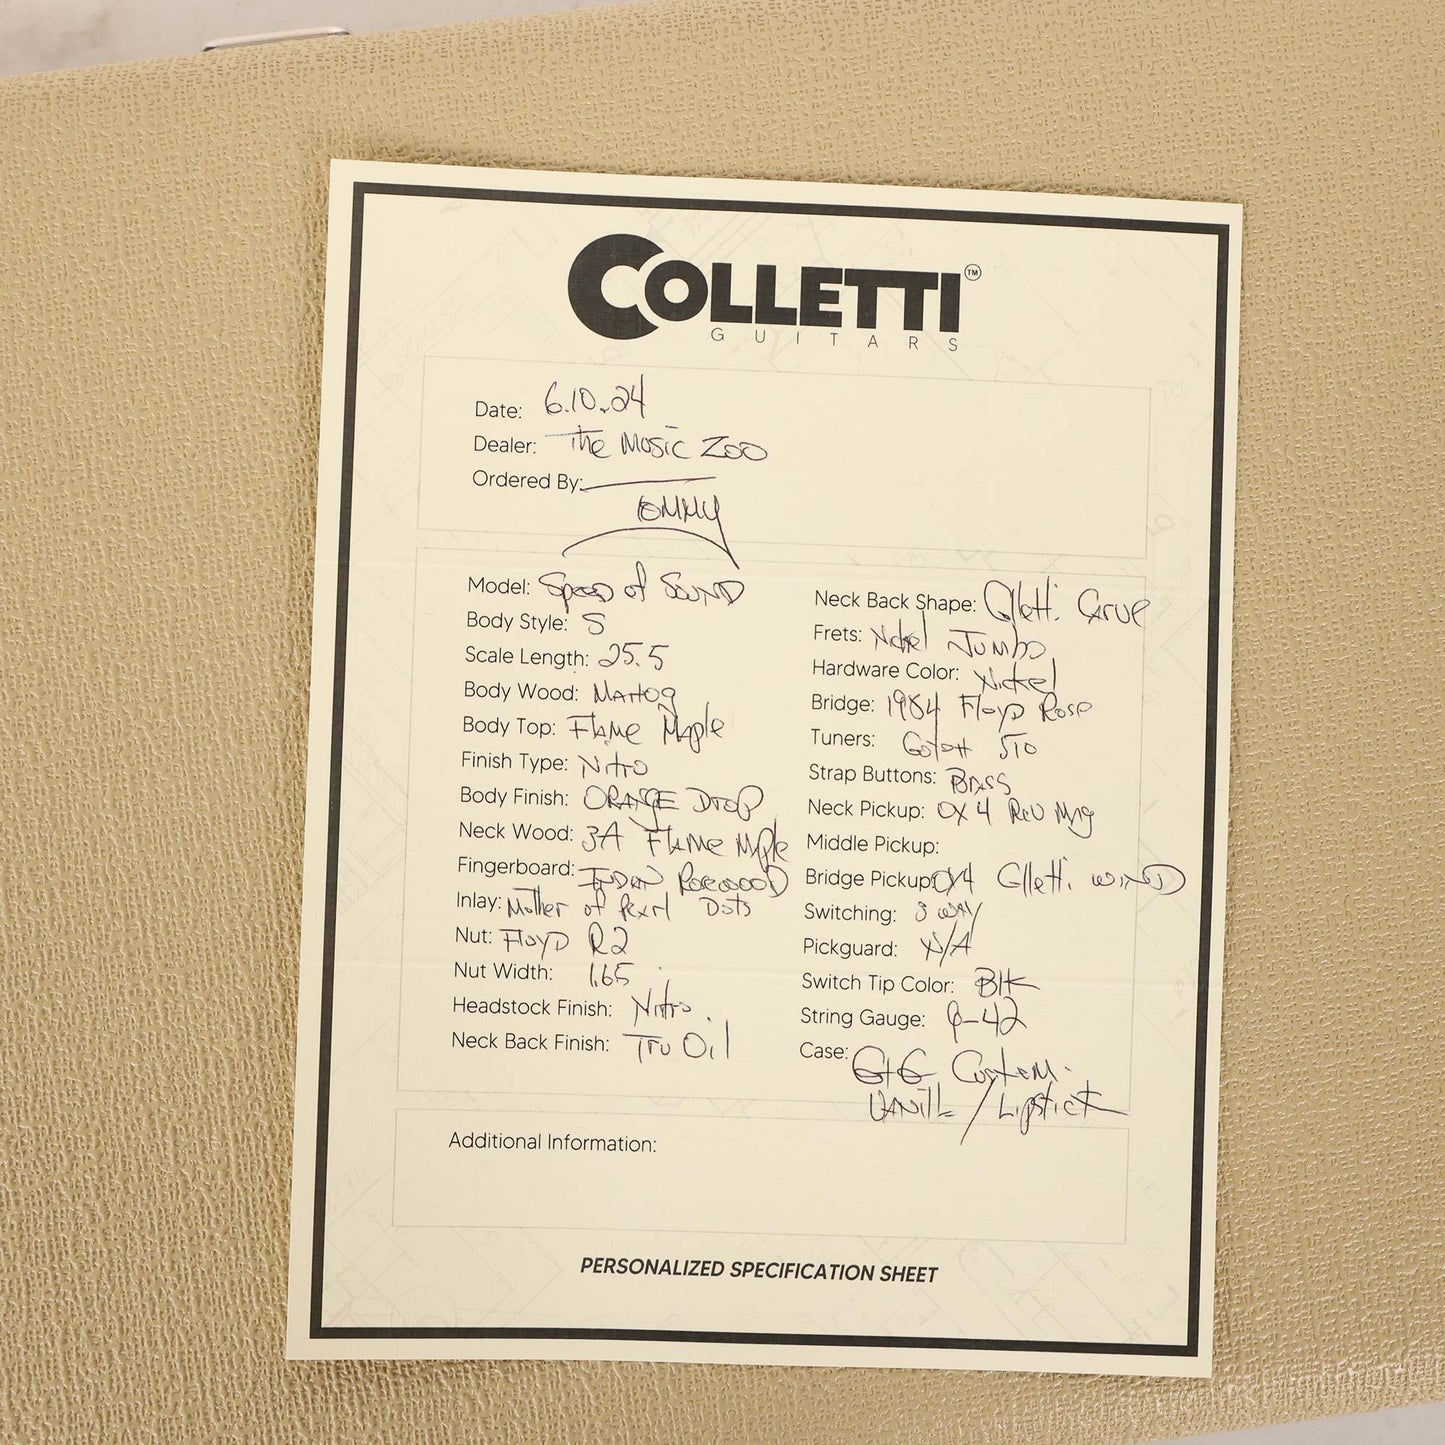 COLLETTI™
GUITARS
Date: 6.10.24
Dealer: The Music Zoo
Ordered By: Tommy
Model: Speed of Sound
Body Style: S
Scale Length: 25.5
Body Wood: Mahog
Body Top: Flame Maple
Finish Type: Nitro
Body Finish: Orange Drop
Neck Wood: 3A Flame Maple
Fingerboard: Indian Rosewood
Inlay: Mother of Pearl Dots
Nut: Floyd R2
Nut Width: 1.65
Headstock Finish: Nitro.
Neck Back Finish: Tru Oil
Neck Back Shape: Colletti Carve
Frets: Nickel Jumbo
Hardware Color: Nickel
Bridge: 1984 Floyd Rose
Tuners: Gotoh 510
Strap Buttons: Brass
Neck Pickup: OX4 Rev Mag
Middle Pickup:
Bridge Pickup: OX4 Colletti Wind
Switching: 3 way
Pickguard: N/A
Switch Tip Color: Blk
String Gauge: 9-42
Case: G+G Custom.
Vanilla / Lipstick
Additional Information:
PERSONALIZED SPECIFICATION SHEET